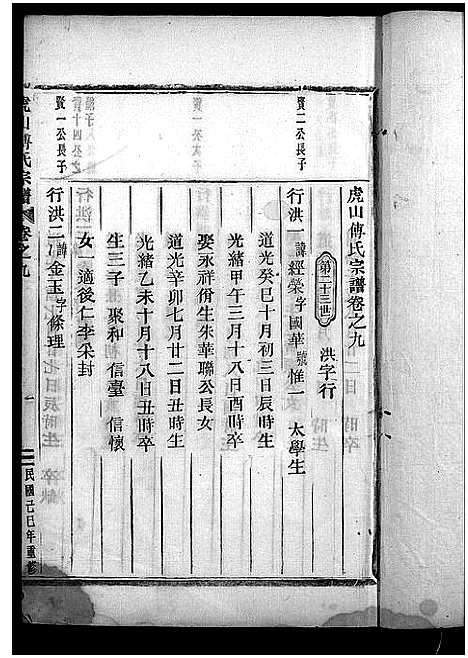 虎山傅氏宗譜卷之九
第二十三世 洪字行
賢二公長子
行洪一諱經榮字國華號惟一 太學生
道光癸巳十月初三日辰時生
光緒甲午三月十八日酉時卒
娶永祥份生朱華聯公長女
道光辛卯七月廿二日丑時生
光緒乙未十月十八日丑時卒
生三子 聚和 信臺 信懷
女一適後仁李采封
賢一公長子
行洪二諱金玉字條理
虎山傅氏宗譜 卷之九
一
民國己巳年重修